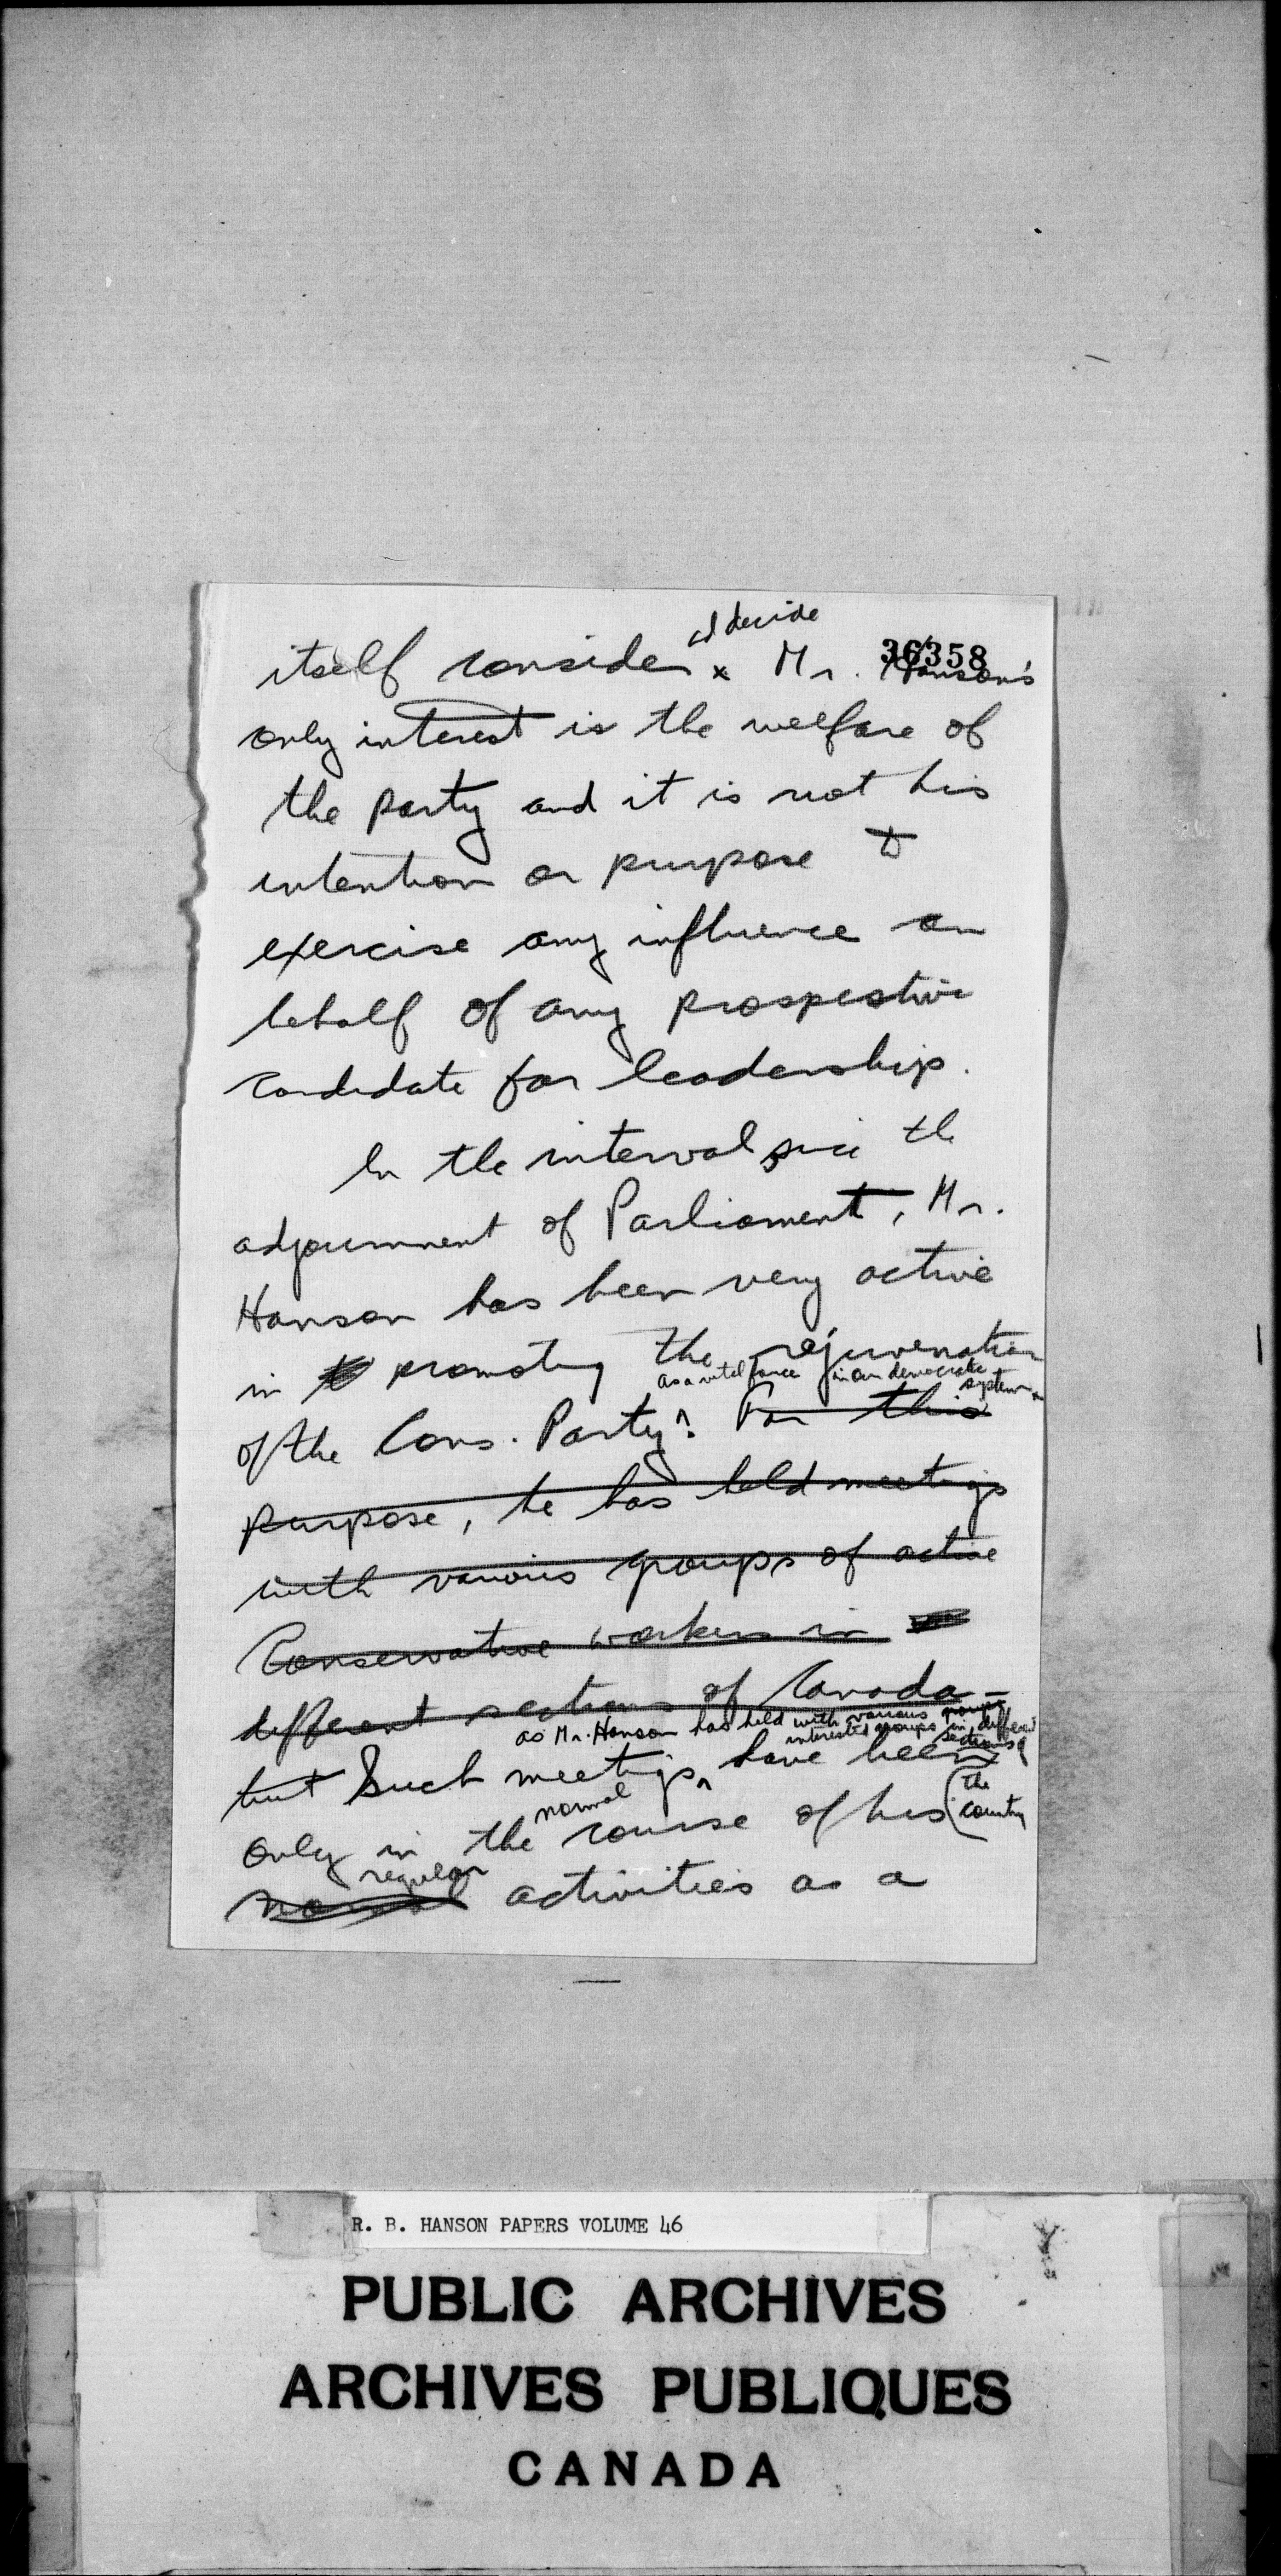 & decide
36358
itself consider x Mr. Hanson's
only interest is the welfare of
the party and it is not his
intention or purpose to
exercise any influence on
behalf of any prospective
candidate for leadership.
In the interval since the
adjournment of Parliament, Mr.
Hanson has been very active
in to promoting the rejuvenation
as a vital force in our democratic
system
of the Cons. Party. For this
purpose, he has held meetings
with various groups of active
Conservative workers in
different sections of Canada –
as Mr. Hanson has held with various groups
interested groups in different
sections of
but Such meetings have been
the
country
normal
only in the course of his
regular
normal activities as a
R. B. HANSON PAPERS VOLUME 46
PUBLIC ARCHIVES
ARCHIVES PUBLIQUES
CANADA